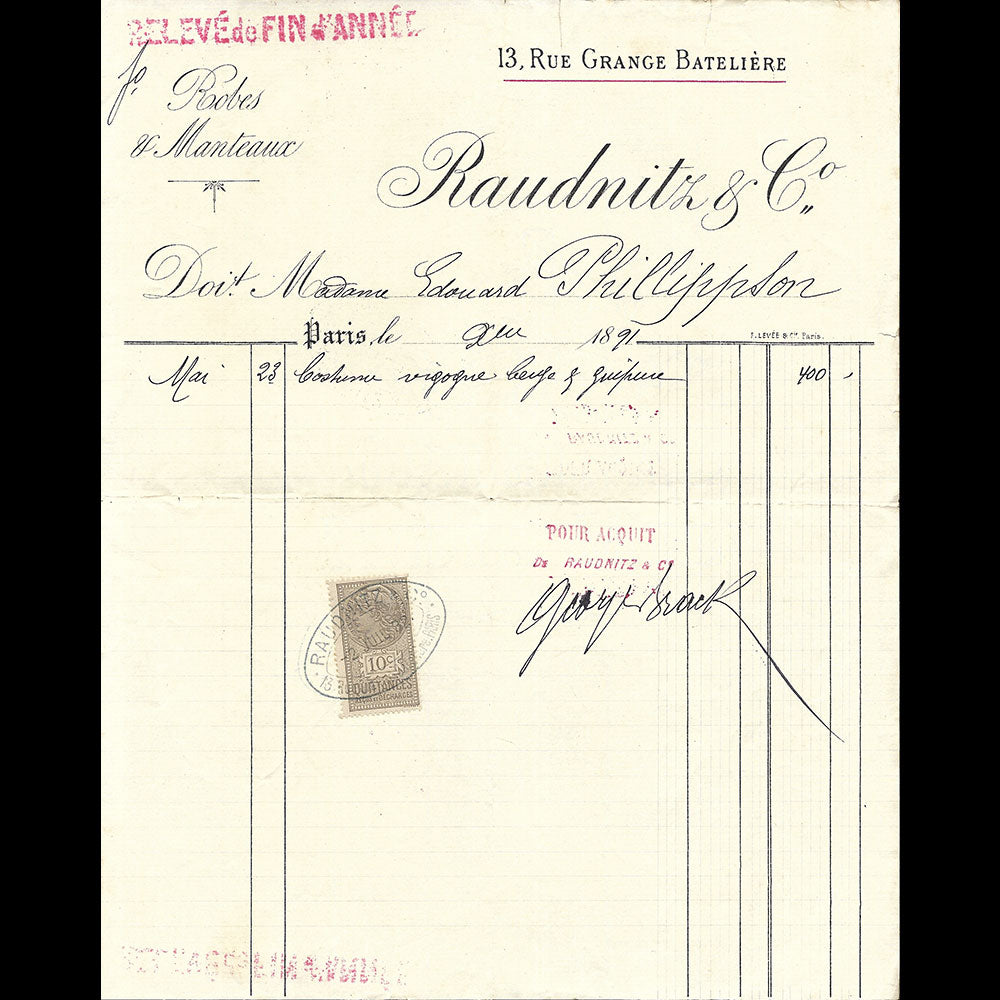 RELEVÉ de FIN d'ANNÉE
13, RUE GRANGE BATELIÈRE
fo
Robes
& Manteaux
Raudnitz & Co.
Doit Madame Edouard Philippson
Paris, le Xbre 1891
F. LEVÉE & Cie Paris.
Mai 23 Costume vigogne beige & guipure 400 -
POUR ACQUIT
De RAUDNITZ & Co
RAUDNITZ
10c
QUITTANCES